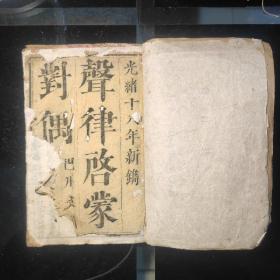 光緒十八年新鐫
聲律啓蒙
對偶